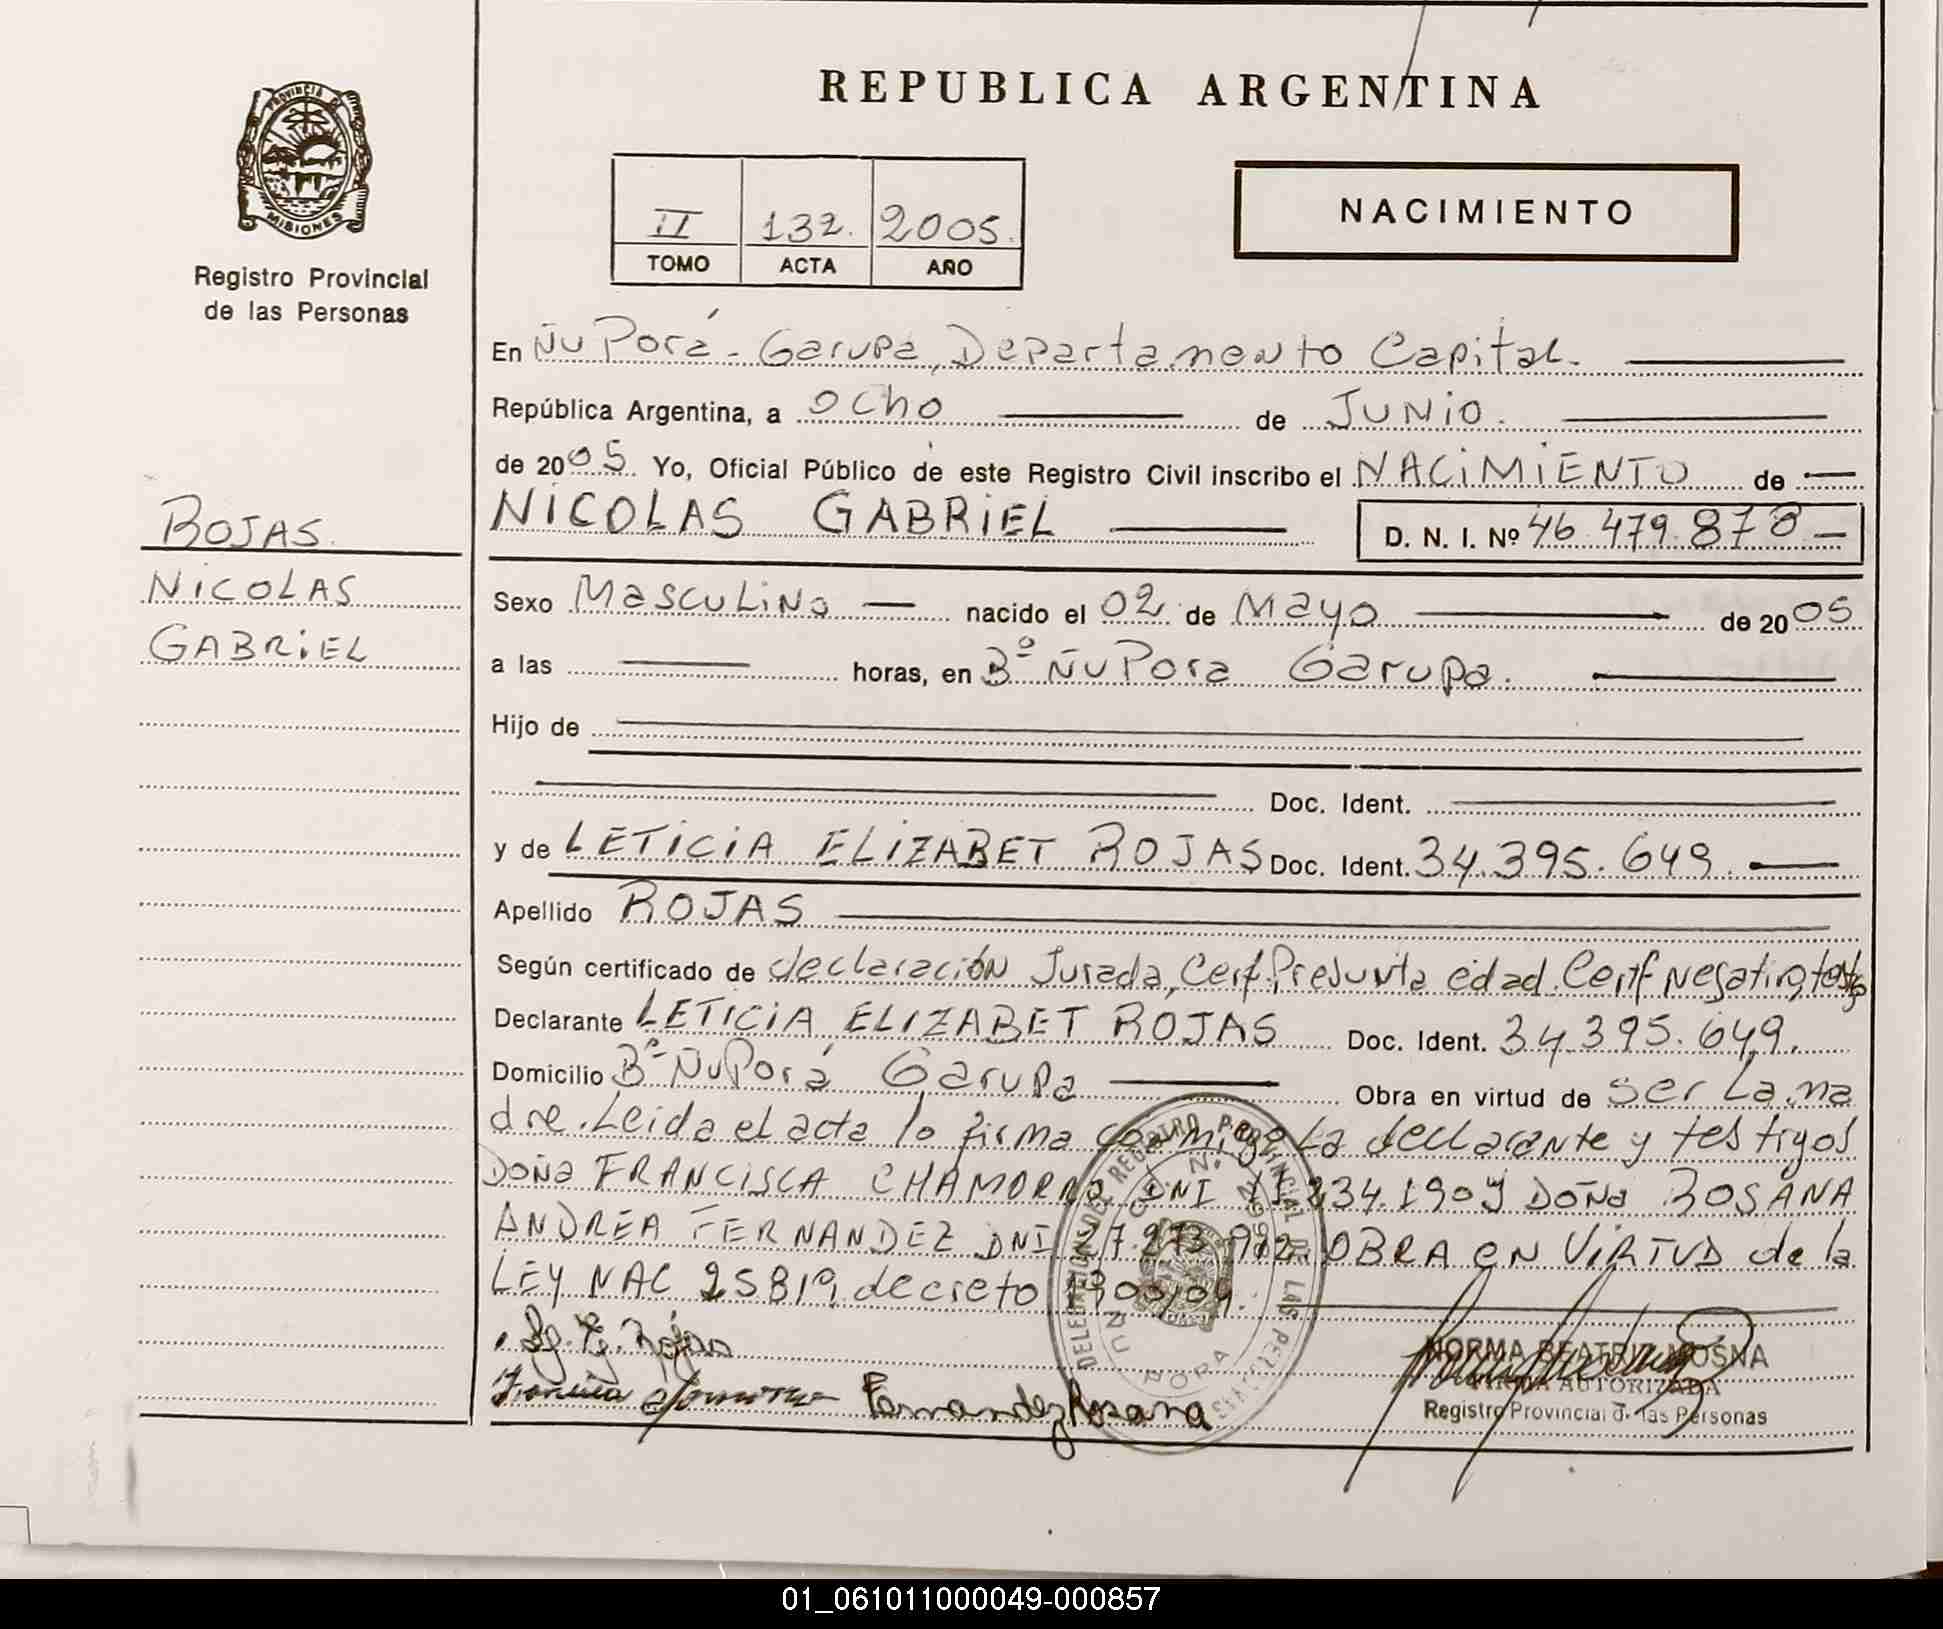 REPUBLICA ARGENTINA
PROVINCIA DE
MISIONES
Registro Provincial
de las Personas
II 132. 2005.
TOMO ACTA AÑO
NACIMIENTO
En Ñu Porá - Garupá, Departamento Capital.
República Argentina, a ocho de JUNIO.
de 2005 Yo, Oficial Público de este Registro Civil inscribo el NACIMIENTO de
NICOLAS GABRIEL
D. N. I. Nº 46.479.878
ROJAS.
NICOLAS
GABRIEL
Sexo Masculino nacido el 02 de Mayo de 2005
a las horas, en Bº Ñu Pora Garupa.
Hijo de
Doc. Ident.
y de LETICIA ELIZABET ROJAS Doc. Ident. 34.395.649.
Apellido ROJAS
Según certificado de declaración Jurada, Cert. Presunta edad. Certf negativo,
Declarante LETICIA ELIZABET ROJAS Doc. Ident. 34.395.649.
Domicilio Bº Ñu Porá Garupa Obra en virtud de ser La ma
dre. Leida el acta lo firma conmigo La declarante y testigos
Doña FRANCISCA CHAMORRO DNI 234.190 y Doña ROSANA
ANDREA FERNANDEZ DNI 27.273.972. OBRA EN VIRTUD de la
LEY NAC 25819, decreto
DELEGACION DEL REGISTRO PROVINCIAL DE LAS PERSONAS
ÑU PORA
Rojas
Fernandez Rosana
NORMA BEATRIZ MOSNA
FIRMA AUTORIZADA
Registro Provincial de las Personas
01_061011000049-000857